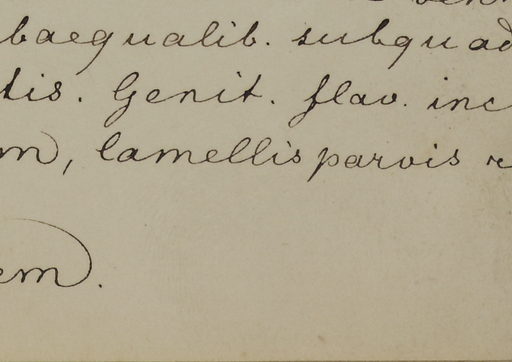 baequalib. subquad
tis. Genit. flav. inc
m, lamellis parvis r
em.